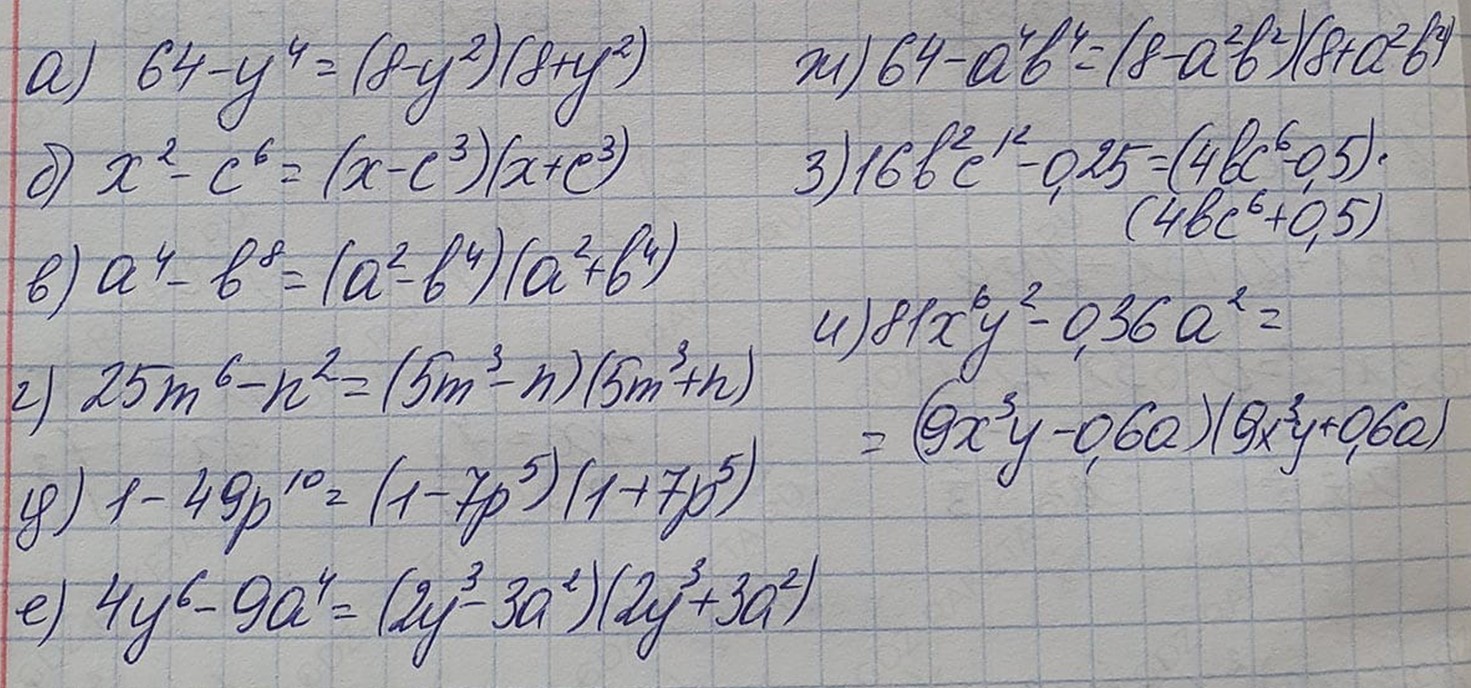 а) 64-y⁴=(8-y²)(8+y²)
б) x²-c⁶=(x-c³)(x+c³)
в) a⁴-b⁸=(a²-b⁴)(a²+b⁴)
г) 25m⁶-n²=(5m³-n)(5m³+n)
д) 1-49p¹⁰=(1-7p⁵)(1+7p⁵)
е) 4y⁶-9a⁴=(2y³-3a²)(2y³+3a²)
ж) 64-a⁴b⁴=(8-a²b²)(8+a²b²)
з) 16b²c¹²-0,25=(4bc⁶-0,5)·
(4bc⁶+0,5)
и) 81x⁶y²-0,36a²=
=(9x³y-0,6a)(9x³y+0,6a)